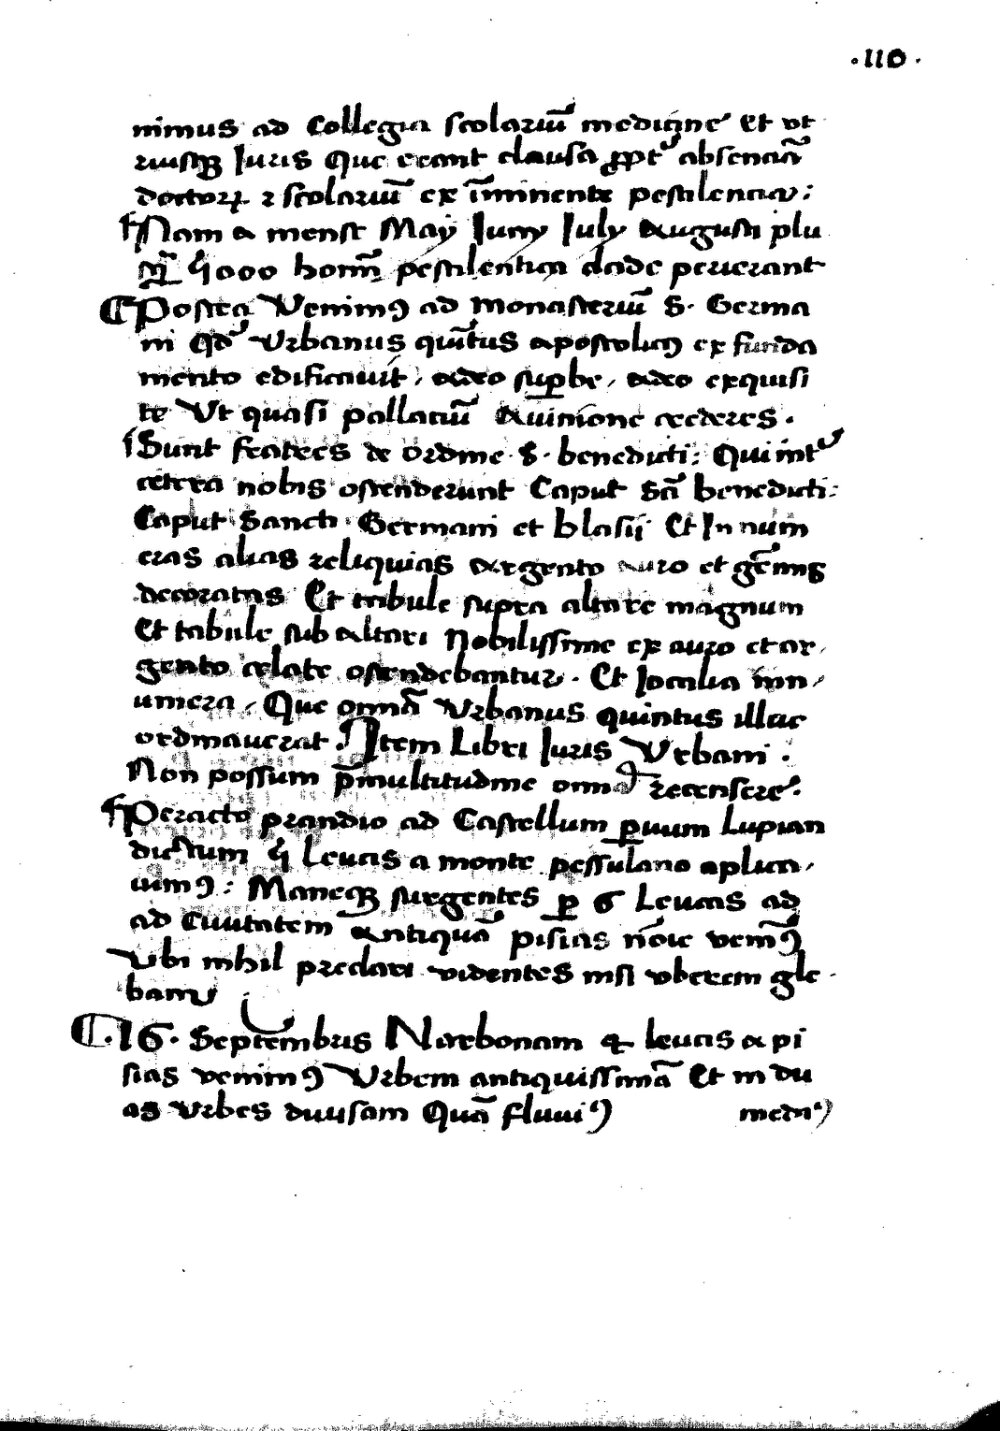 ·110·
nimus ad Collegia scolariũ medicine Et vt
riusqȝ Iuris Que erant clausa ꝓpt' absenciã
doctorꝝ ⁊ scolariũ ex ĩminente pestilencia:
Nam a mense May Iuny July Augusti plu
4000 hoĩm pestilentica clade perierant
Postea Venimꝰ ad monasteriũ S. Germa
ni qd' Vrbanus quĩtus apostolicꝰ ex funda
mento edificauit, adeo suꝑbe, adeo exquisi
te Vt quasi pallaciũ Auinione crederes.
Sunt fratres de ordine S. benedicti: Qui int'
cetera nobis ostenderunt Caput Sci benedicti:
Caput Sancti Germani et Blasij Et Innum
eras alias reliquias Argento auro et gẽmis
decoratas Et tabule supra altare magnum
Et tabule sub altari Nobilissime ex auro et ar,
gento celate ostendebantur. Et Iocalia inn,
umera, Que omnĩa Vrbanus quintus illac
ordinauerat. Item Libri Iuris Vrbani.
Non possum p̃ multitudine omnia recensere.
Peracto prandio ad Castellum ꝑuum Lupian
dictum 4 Leucis a monte pessulano aplica,
uimꝰ: Maneqȝ surgentes ꝑ 6 Leucas ad
ad Ciuitatem Antiquã pisias nõie venimꝰ
Vbi nihil preclari videntes nisi vberem gle
bam
.16. Septembris Narbonam 4 leucis a pi
sias venimꝰ Vrbem antiquissimã Et in du
as Vrbes diuisam Quã fluuiꝰ
mediꝰ